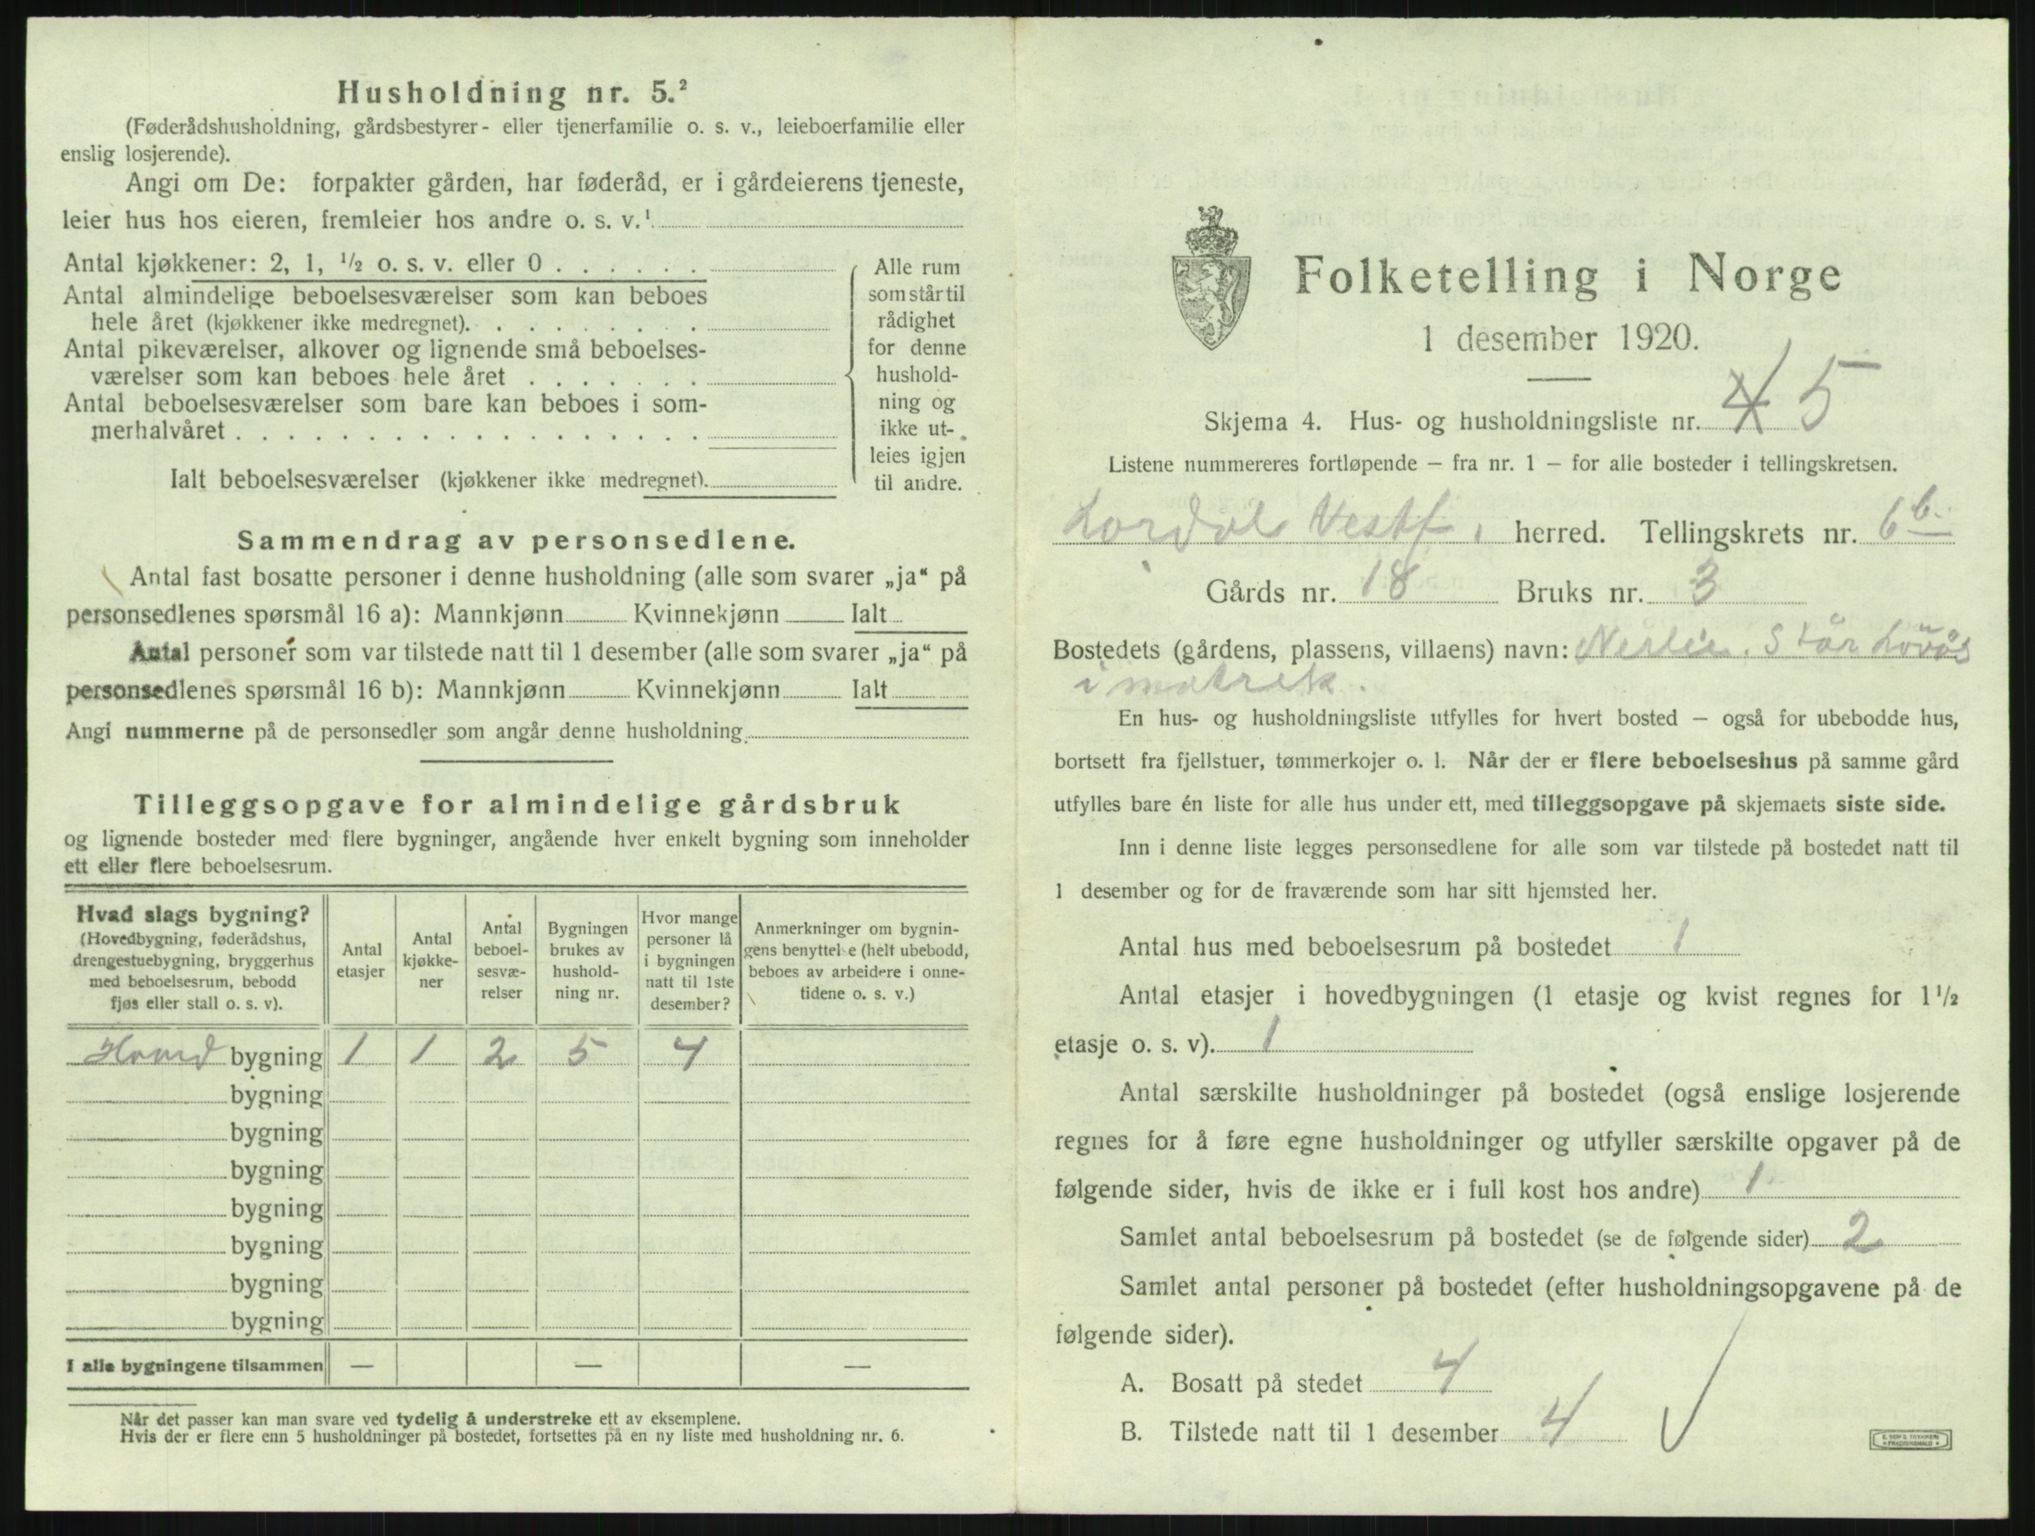 Husholdning nr. 5.²
(Føderådshusholdning, gårdsbestyrer- eller tjenerfamilie o. s. v., leieboerfamilie eller
enslig losjerende).
Angi om De: forpakter gården, har føderåd, er i gårdeierens tjeneste,
leier hus hos eieren, fremleier hos andre o. s. v.¹
Antal kjøkkener: 2, 1, ¹/₂ o. s. v. eller 0 . . . . . .
Antal almindelige beboelsesværelser som kan beboes
hele året (kjøkkener ikke medregnet). . . . . . . . .
Antal pikeværelser, alkover og lignende små beboelses-
værelser som kan beboes hele året . . . . . . .
Antal beboelsesværelser som bare kan beboes i som-
merhalvåret . . . . . . . . . . . . . . . . . .
Ialt beboelsesværelser (kjøkkener ikke medregnet).
Alle rum
som står til
rådighet
for denne
hushold-
ning og
ikke ut-
leies igjen
til andre.
Sammendrag av personsedlene.
Antal fast bosatte personer i denne husholdning (alle som svarer „ja“ på
personsedlenes spørsmål 16 a): Mannkjønn Kvinnekjønn Ialt
Antal personer som var tilstede natt til 1 desember (alle som svarer „ja“ på
personsedlenes spørsmål 16 b): Mannkjønn Kvinnekjønn Ialt
Angi nummerne på de personsedler som angår denne husholdning
Tilleggsopgave for almindelige gårdsbruk
og lignende bosteder med flere bygninger, angående hver enkelt bygning som inneholder
ett eller flere beboelsesrum.
Hvad slags bygning?
(Hovedbygning, føderådshus,
drengestuebygning, bryggerhus
med beboelsesrum, bebodd
fjøs eller stall o. s. v).
Antal
etasjer
Antal
kjøkke-
ner
Antal
beboel-
sesvæ-
relser
Bygningen
brukes av
hushold-
ning nr.
Hvor mange
personer lå
i bygningen
natt til 1ste
desember?
Anmerkninger om bygnin-
gens benyttelse (helt ubebodd,
beboes av arbeidere i onne-
tidene o. s. v.)
Hovedbygning 1 1 2 5 4
bygning
bygning
bygning
bygning
bygning
bygning
bygning
I alle bygningene tilsammen — — —
Når det passer kan man svare ved tydelig å understreke ett av eksemplene.
Hvis der er flere enn 5 husholdninger på bostedet, fortsettes på en ny liste med husholdning nr. 6.
Folketelling i Norge
1 desember 1920.
Skjema 4. Hus- og husholdningsliste nr. 4 5
Listene nummereres fortløpende – fra nr. 1 – for alle bosteder i tellingskretsen.
Lardal Vestf. herred. Tellingskrets nr. 6 b.
Gårds nr. 18 Bruks nr. 3
Bostedets (gårdens, plassens, villaens) navn: Står
i matrik.
En hus- og husholdningsliste utfylles for hvert bosted – også for ubebodde hus,
bortsett fra fjellstuer, tømmerkojer o. l. Når der er flere beboelseshus på samme gård
utfylles bare én liste for alle hus under ett, med tilleggsopgave på skjemaets siste side.
Inn i denne liste legges personsedlene for alle som var tilstede på bostedet natt til
1 desember og for de fraværende som har sitt hjemsted her.
Antal hus med beboelsesrum på bostedet 1
Antal etasjer i hovedbygningen (1 etasje og kvist regnes for 1¹/₂
etasje o. s. v). 1
Antal særskilte husholdninger på bostedet (også enslige losjerende
regnes for å føre egne husholdninger og utfyller særskilte opgaver på de
følgende sider, hvis de ikke er i full kost hos andre) 1
Samlet antal beboelsesrum på bostedet (se de følgende sider) 2
Samlet antal personer på bostedet (efter husholdningsopgavene på de
følgende sider).
A. Bosatt på stedet 4
B. Tilstede natt til 1 desember 4